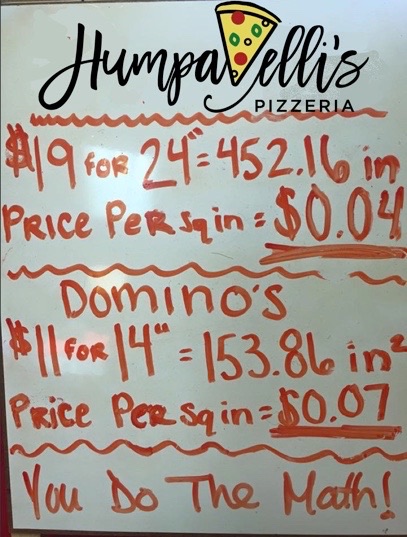 Humpavelli's
PIZZERIA
$19 FOR 24" = 452.16 in
PRICE PER sq in = $0.04
DOMINO'S
$11 FOR 14" = 153.86 in²
PRICE PER sq in = $0.07
You Do The Math!